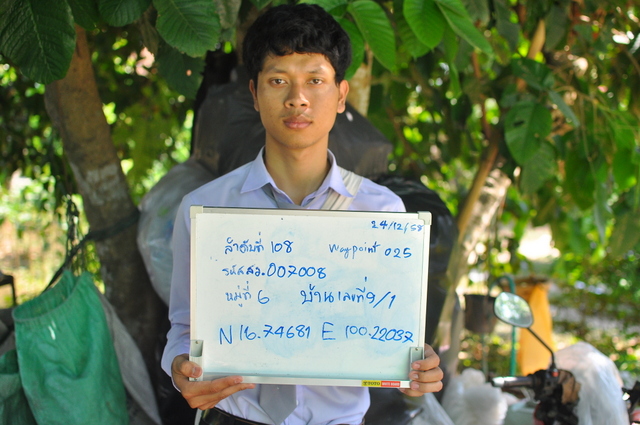 24/12/58
ลำดับที่ 108 waypoint 025
รหัสสว.007008
หมู่ที่ 6 บ้านเลขที่ 9/1
N 16.74681 E 100.22037